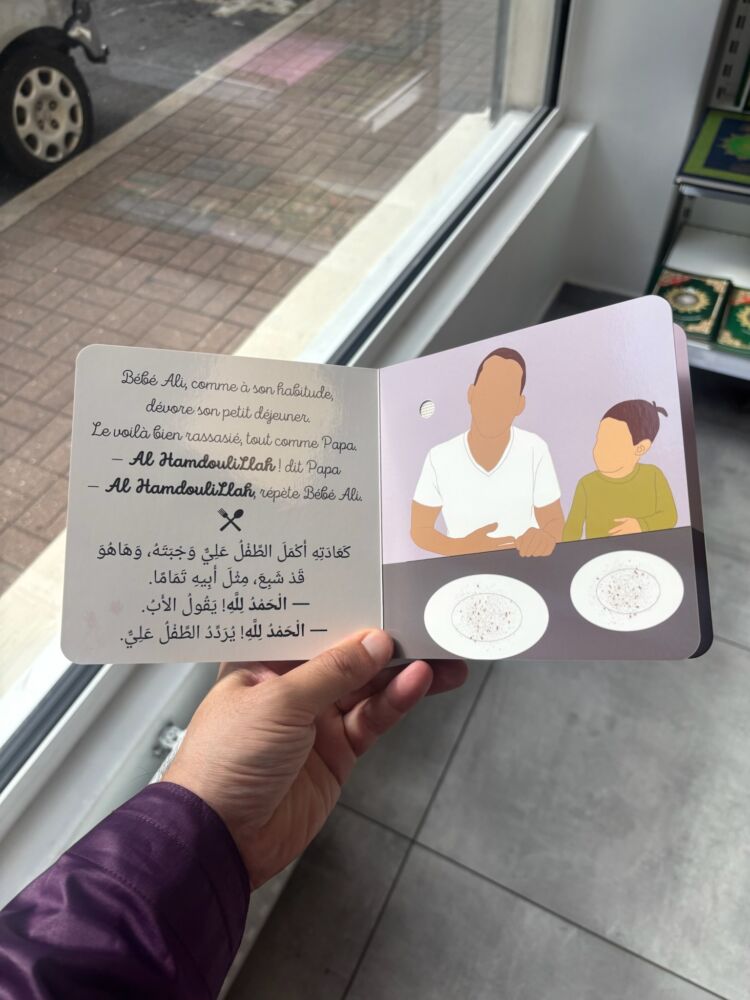 Bébé Ali, comme à son habitude,
dévore son petit déjeuner.
Le voilà bien rassasié, tout comme Papa.
— Al HamdouliLlah ! dit Papa
— Al HamdouliLlah, répète Bébé Ali.
كَعَادَتِهِ أَكْمَلَ الطِّفْلُ عَلِيٌّ وَجْبَتَهُ، وَهَاهُوَ
قَدْ شَبِعَ، مِثْلَ أَبِيهِ تَمَامًا.
— الْحَمْدُ لِلَّهِ! يَقُولُ الأَبُ.
— الْحَمْدُ لِلَّهِ! يُرَدِّدُ الطِّفْلُ عَلِيٌّ.